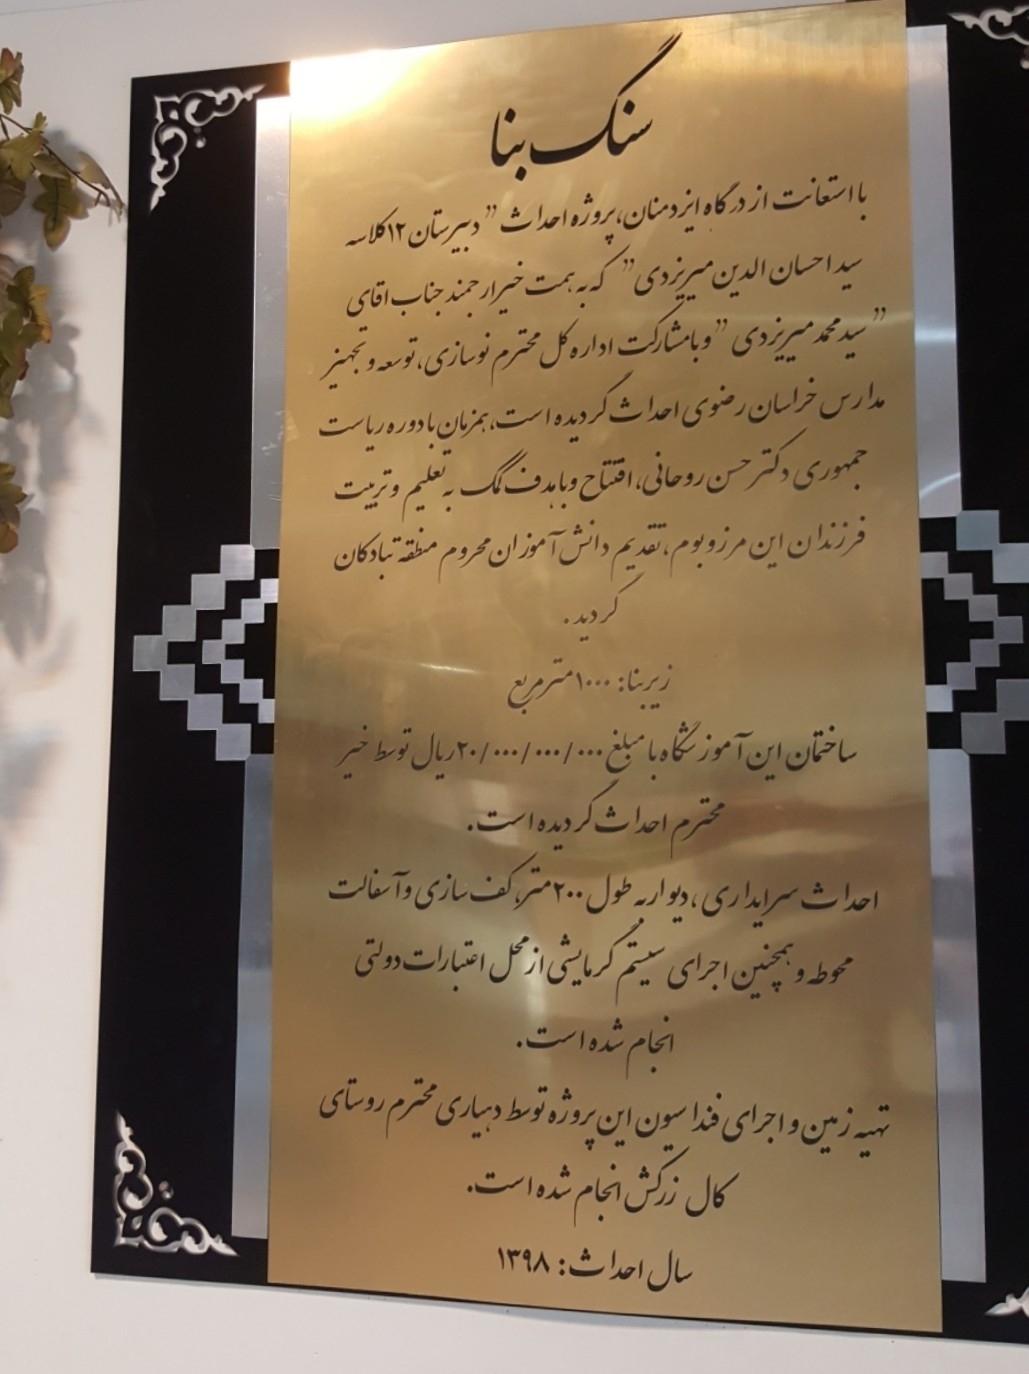 سنگ بنا
با استعانت از درگاه ایزدمنان، پروژه احداث " دبیرستان ۱۲کلاسه
سید احسان الدین میریزدی" که به همت خیر ارجمند جناب اقای
"سید محمد میریزدی " و با مشارکت اداره کل محترم نوسازی، توسعه و تجهیز
مدارس خراسان رضوی احداث گردیده است، همزمان با دوره ریاست
جمهوری دکتر حسن روحانی، افتتاح و با هدف کمک به تعلیم و تربیت
فرزندان این مرزو بوم، تقدیم دانش آموزان محروم منطقه تبادکان
گردید.
زیربنا: ۱۰۰۰مترمربع
ساختمان این آموزشگاه با مبلغ ۲۰/۰۰۰/۰۰۰/۰۰۰ریال توسط خیر
محترم احداث گردیده است.
احداث سرایداری، دیوار به طول ۲۰۰متر، کف سازی و آسفالت
محوطه و همچنین اجرای سیستم گرمایشی از محل اعتبارات دولتی
انجام شده است.
تهیه زمین و اجرای فنداسیون این پروژه توسط دهیاری محترم روستای
کال زرکش انجام شده است.
سال احداث: ۱۳۹۸